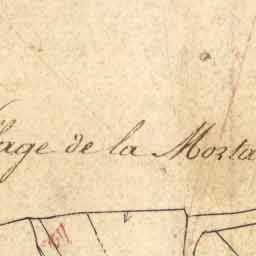 lage de la Morta